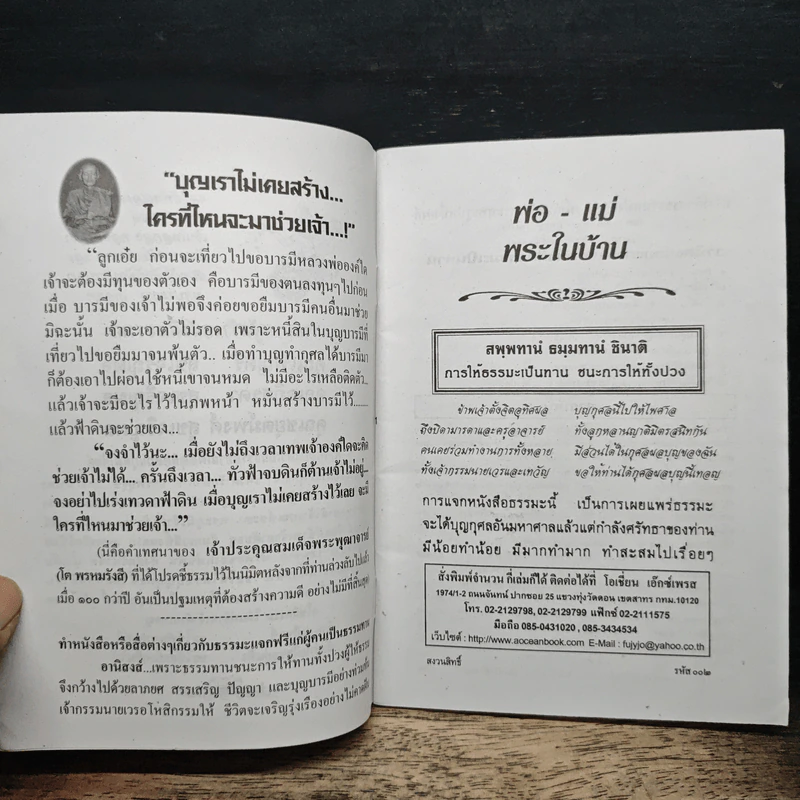 "บุญเราไม่เคยสร้าง...
ใครที่ไหนจะมาช่วยเจ้า...!"
"ลูกเอ๋ย ก่อนจะเที่ยวไปขอบารมีหลวงพ่อองค์ใด
เจ้าจะต้องมีทุนของตัวเอง คือบารมีของตนลงทุนๆไปก่อน
เมื่อ บารมีของเจ้าไม่พอจึงค่อยขอยืมบารมีคนอื่นมาช่วย
มิฉะนั้น เจ้าจะเอาตัวไม่รอด เพราะหนี้สินในบุญบารมีที่
เที่ยวไปขอยืมมาจนพ้นตัว.. เมื่อทำบุญทำกุศลได้บารมีมา
ก็ต้องเอาไปผ่อนใช้หนี้เขาจนหมด ไม่มีอะไรเหลือติดตัว...
แล้วเจ้าจะมีอะไรไว้ในภพหน้า หมั่นสร้างบารมีไว้......
แล้วฟ้าดินจะช่วยเอง...
"จงจำไว้นะ... เมื่อยังไม่ถึงเวลาเทพเจ้าองค์ใดจะคิด
ช่วยเจ้าไม่ได้... ครั้นถึงเวลา... ทั่วฟ้าจบดินก็ต้านเจ้าไม่อยู่...
จงอย่าไปเร่งเทวดาฟ้าดิน เมื่อบุญเราไม่เคยสร้างไว้เลย จะมี
ใครที่ไหนมาช่วยเจ้า..."
(นี่คือคำเทศนาของ เจ้าประคุณสมเด็จพระพุฒาจารย์
(โต พรหมรังสี) ที่ได้โปรดชี้ธรรมไว้ในนิมิตหลังจากที่ท่านล่วงลับไปแล้ว
เมื่อ ๑๐๐ กว่าปี อันเป็นปฐมเหตุที่ต้องสร้างความดี อย่างไม่มีที่สิ้นสุด)
ทำหนังสือหรือสื่อต่างๆเกี่ยวกับธรรมะแจกฟรีแก่ผู้คนเป็นธรรมทาน
อานิสงส์...เพราะธรรมทานชนะการให้ทานทั้งปวงผู้ให้ธรรม
จึงกว้างไปด้วยลาภยศ สรรเสริญ ปัญญา และบุญบารมีอย่างท่วมท้น
เจ้ากรรมนายเวรอโหสิกรรมให้ ชีวิตจะเจริญรุ่งเรืองอย่างไม่คาดคิด
พ่อ - แม่
พระในบ้าน
สพฺพทานํ ธมฺมทานํ ชินาติ
การให้ธรรมะเป็นทาน ชนะการให้ทั้งปวง
ข้าพเจ้าตั้งจิตอุทิศผล บุญกุศลนี้ไปให้ไพศาล
ถึงบิดามารดาและครูอาจารย์ ทั้งลูกหลานญาติมิตรสนิทกัน
คนเคยร่วมทำงานการทั้งหลาย มีส่วนได้ในกุศลผลบุญของฉัน
ทั้งเจ้ากรรมนายเวรและเทวัญ ขอให้ท่านได้กุศลผลบุญนี้เทอญ
การแจกหนังสือธรรมะนี้ เป็นการเผยแพร่ธรรมะ
จะได้บุญกุศลอันมหาศาลแล้วแต่กำลังศรัทธาของท่าน
มีน้อยทำน้อย มีมากทำมาก ทำสะสมไปเรื่อยๆ
สั่งพิมพ์จำนวน กี่เล่มก็ได้ ติดต่อได้ที่ โอเชี่ยน เอ๊กซ์เพรส
1974/1-2 ถนนจันทน์ ปากซอย 25 แขวงทุ่งวัดดอน เขตสาทร กทม.10120
โทร. 02-2129798, 02-2129799 แฟ็กซ์ 02-2111575
มือถือ 085-0431020 , 085-3434534
เว็บไซต์ : http://www.aoceanbook.com E-Mail : fujyjo@yahoo.co.th
สงวนสิทธิ์
รหัส ๐๐๒